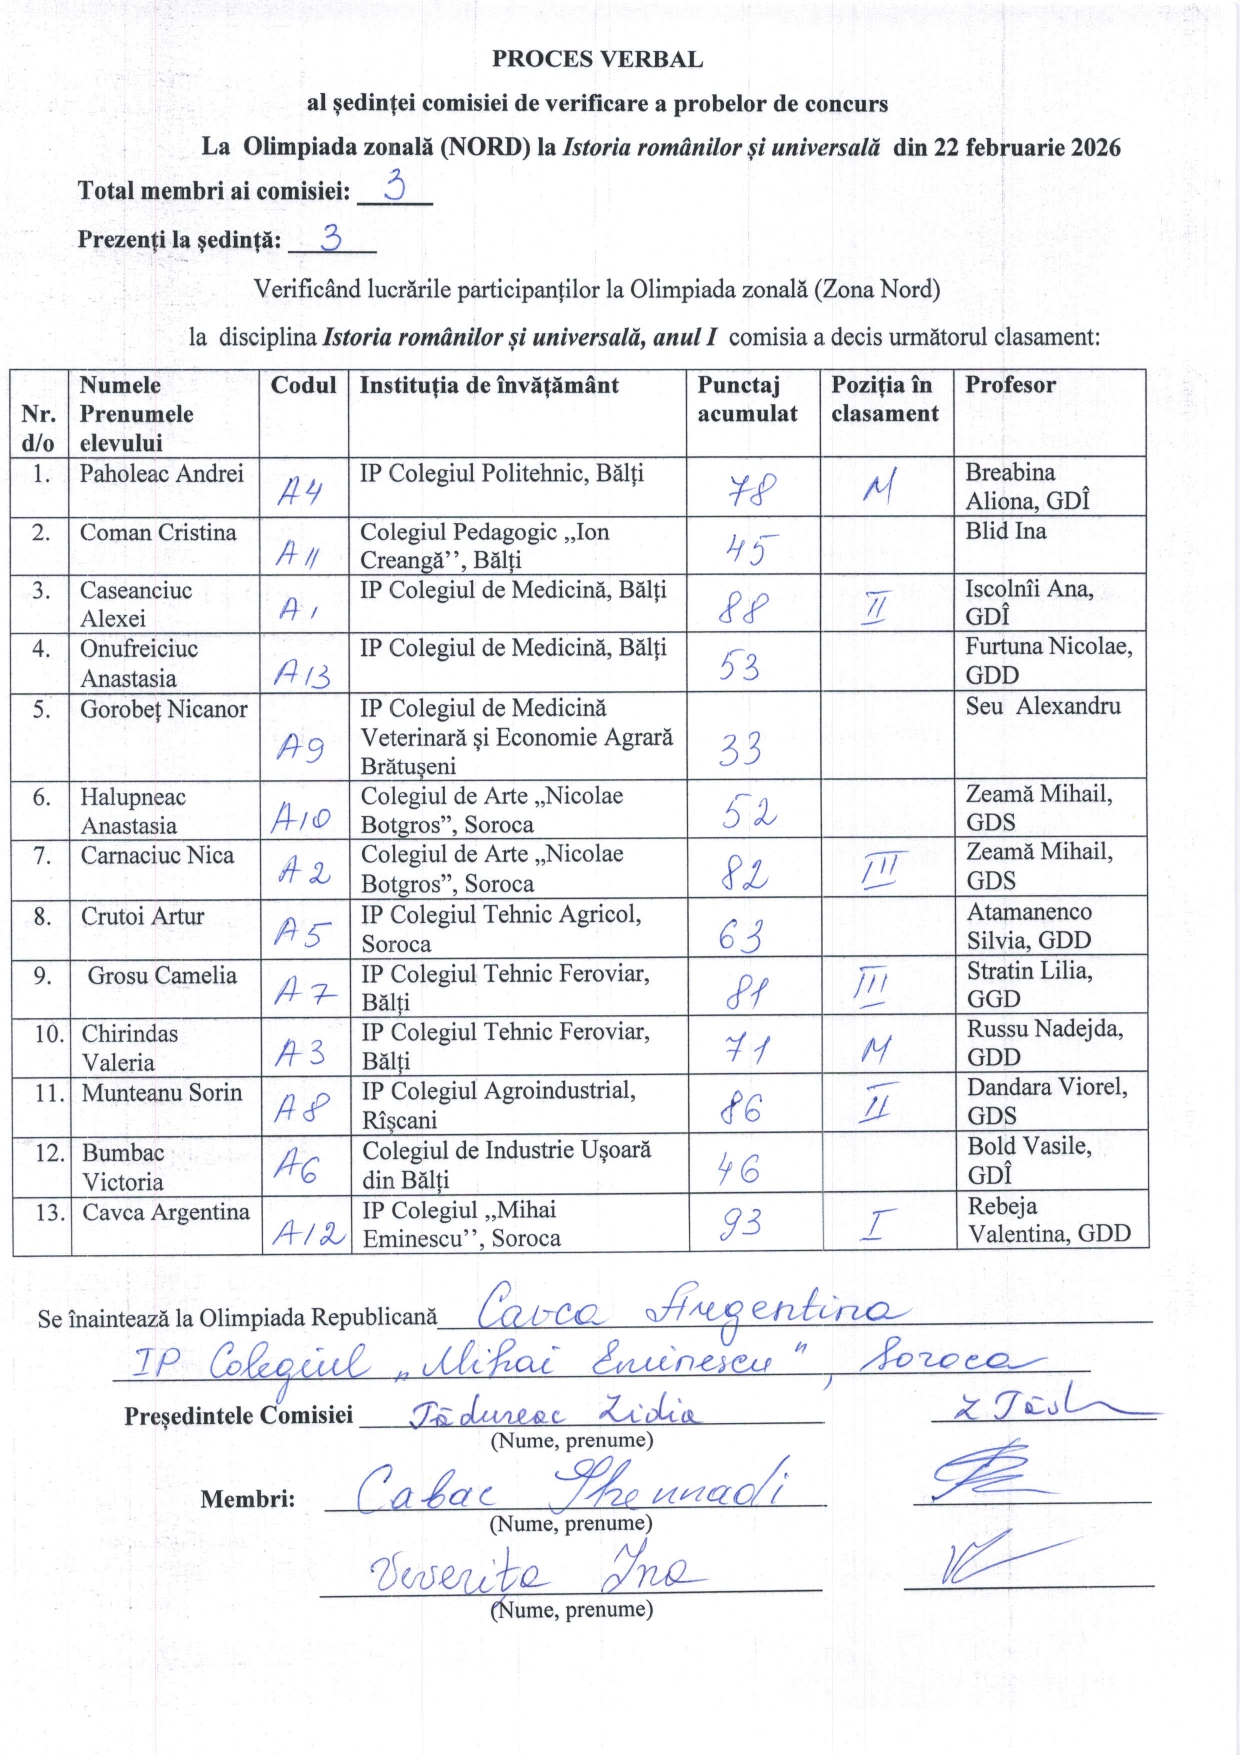 PROCES VERBAL
al ședinței comisiei de verificare a probelor de concurs
La Olimpiada zonală (NORD) la Istoria românilor și universală din 22 februarie 2026
Total membri ai comisiei: 3
Prezenți la ședință: 3
Verificând lucrările participanților la Olimpiada zonală (Zona Nord)
la disciplina Istoria românilor și universală, anul I comisia a decis următorul clasament:
Nr. d/o Numele Prenumele elevului Codul Instituția de învățământ Punctaj acumulat Poziția în clasament Profesor
1. Paholeac Andrei A4 IP Colegiul Politehnic, Bălți 78 M Breabina Aliona, GDÎ
2. Coman Cristina A11 Colegiul Pedagogic ,,Ion Creangă’’, Bălți 45 Blid Ina
3. Caseanciuc Alexei A1 IP Colegiul de Medicină, Bălți 88 II Iscolnîi Ana, GDÎ
4. Onufreiciuc Anastasia A13 IP Colegiul de Medicină, Bălți 53 Furtuna Nicolae, GDD
5. Gorobeț Nicanor A9 IP Colegiul de Medicină Veterinară și Economie Agrară Brătușeni 33 Seu Alexandru
6. Halupneac Anastasia A10 Colegiul de Arte „Nicolae Botgros”, Soroca 52 Zeamă Mihail, GDS
7. Carnaciuc Nica A2 Colegiul de Arte „Nicolae Botgros”, Soroca 82 III Zeamă Mihail, GDS
8. Crutoi Artur A5 IP Colegiul Tehnic Agricol, Soroca 63 Atamanenco Silvia, GDD
9. Grosu Camelia A7 IP Colegiul Tehnic Feroviar, Bălți 81 III Stratin Lilia, GGD
10. Chirindas Valeria A3 IP Colegiul Tehnic Feroviar, Bălți 71 M Russu Nadejda, GDD
11. Munteanu Sorin A8 IP Colegiul Agroindustrial, Rîșcani 86 II Dandara Viorel, GDS
12. Bumbac Victoria A6 Colegiul de Industrie Ușoară din Bălți 46 Bold Vasile, GDÎ
13. Cavca Argentina A12 IP Colegiul ,,Mihai Eminescu’’, Soroca 93 I Rebeja Valentina, GDD
Se înaintează la Olimpiada Republicană Cavca Argentina
IP Colegiul „Mihai Eminescu", Soroca
Președintele Comisiei Țădureac Lidia
(Nume, prenume)
Membri: Cabac Ghennadi
(Nume, prenume)
Veverița Ina
(Nume, prenume)